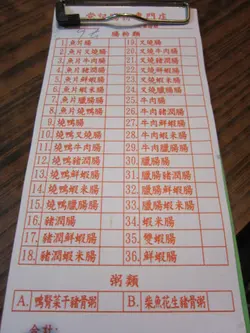 專門店
腸粉類
1. 魚片腸
2. 魚片叉燒腸
3. 魚片牛肉腸
4. 魚片豬潤腸
5. 魚片鮮蝦腸
6. 魚片蝦米腸
魚片臘腸腸
9. 燒鴨腸
10. 燒鴨叉燒腸
11. 燒鴨牛肉腸
12. 燒鴨豬潤腸
13. 燒鴨鮮蝦腸
14. 燒鴨蝦米腸
15. 燒鴨臘腸腸
16. 豬潤腸
17. 豬潤鮮蝦腸
18. 豬潤蝦米腸
19. 叉燒腸
20. 叉燒牛肉腸
21. 叉燒豬潤腸
22. 叉燒鮮蝦腸
23. 叉燒蝦米腸
24. 叉燒臘腸腸
25. 牛肉腸
26. 牛肉豬潤腸
27. 牛肉鮮蝦腸
28. 牛肉蝦米腸
29. 牛肉臘腸腸
30. 臘腸腸
31. 臘腸豬潤腸
32. 臘腸鮮蝦腸
33. 臘腸蝦米腸
34. 蝦米腸
35. 雙蝦腸
36. 鮮蝦腸
粥類
A. 鴨腎菜干豬骨粥
B. 柴魚花生豬骨粥